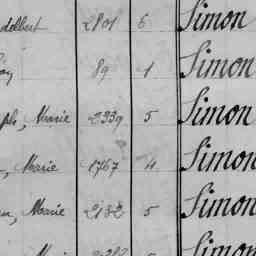 dolbert 2801 6 Simon
89 1 Simon
ph, Marie 2339 5 Simon
, Marie 1767 4 Simon
, Marie 2132 5 Simon
Simon